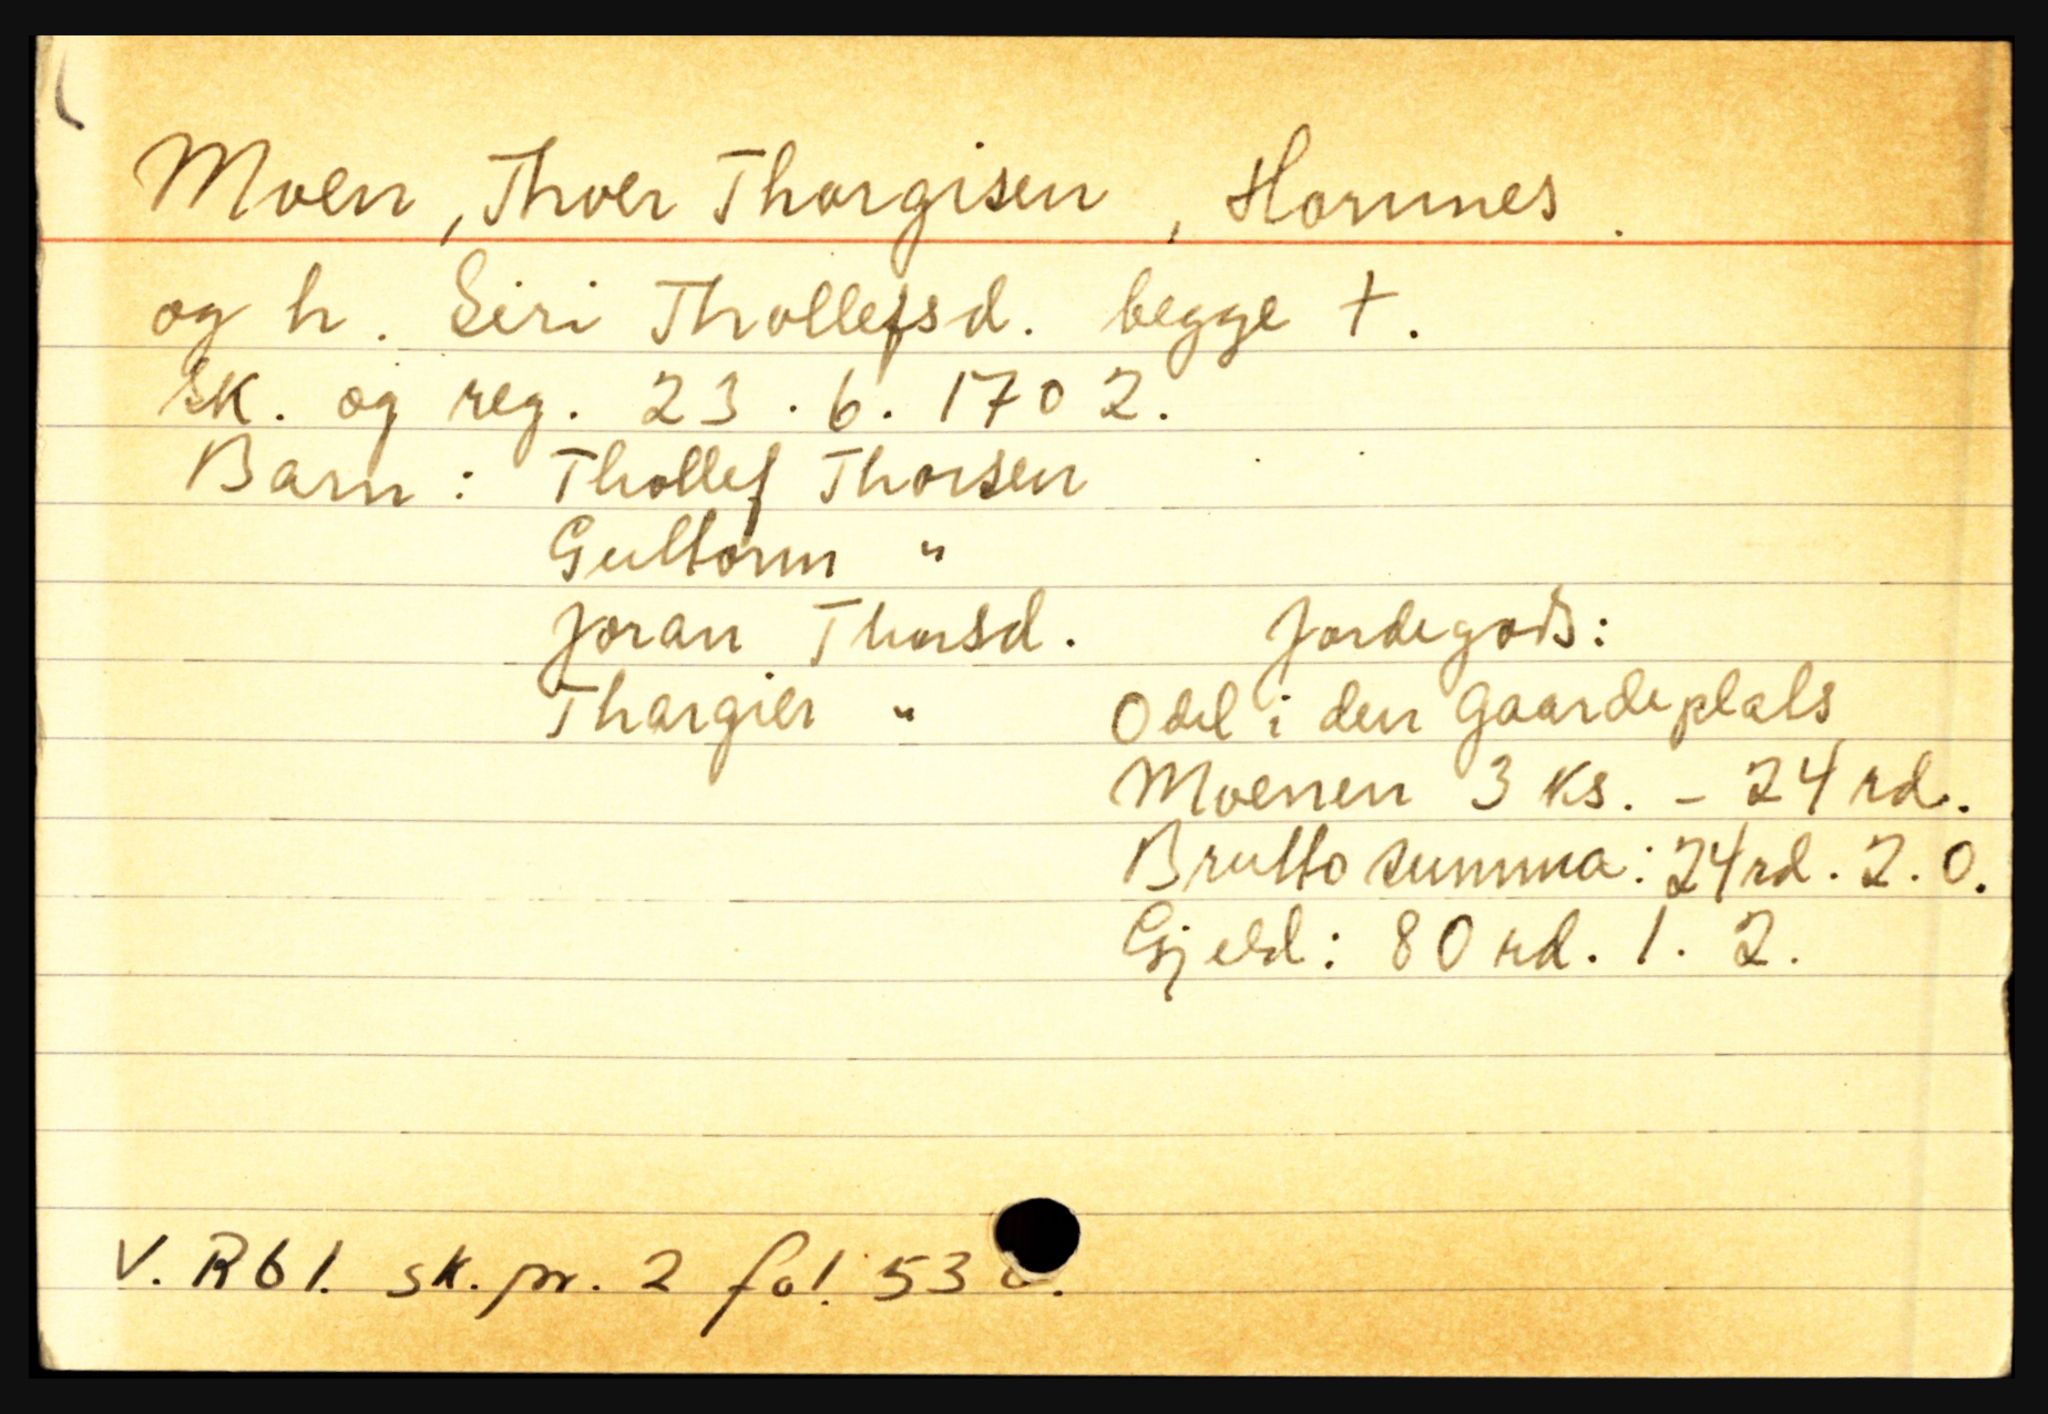 Moen, Thoer Thorgisen, Hornnes.
og h. Siri Thollefsd. begge †.
Sk. og reg. 23.6.1702.
Barn: Thollef Thorsen
Guttorm "
Joran Thorsd.
Thorgier "
Jordegods:
Odel i den Gaardeplats
Moenen 3 ks. - 24 rd.
Brutto summa: 24 rd. 2. 0.
Gjeld: 80 rd. 1. 2.
V. Rbl. sk. pr. 2 fol.